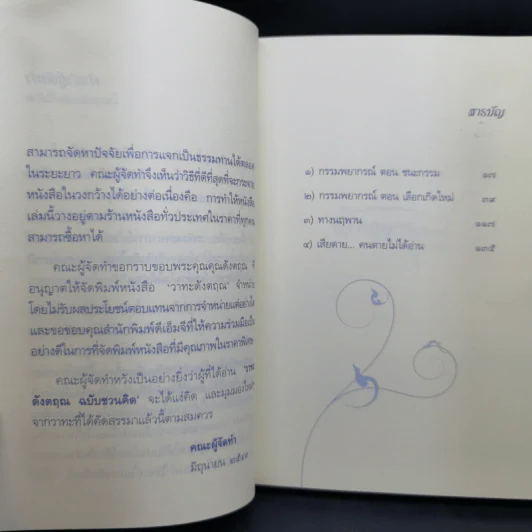 สามารถจัดหาปัจจัยเพื่อการแจกเป็นธรรมทานได้ตลอด
ในระยะยาว คณะผู้จัดทำจึงเห็นว่าวิธีที่ดีที่สุดที่จะกระจาย
หนังสือในวงกว้างได้อย่างต่อเนื่องคือ การทำให้หนังสือ
เล่มนี้วางอยู่ตามร้านหนังสือทั่วประเทศในราคาที่ทุกคน
สามารถซื้อหาได้
คณะผู้จัดทำขอกราบขอบพระคุณคุณดังตฤณ ที่
อนุญาตให้จัดพิมพ์หนังสือ 'วาทะดังตฤณ' จำหน่าย
โดยไม่รับผลประโยชน์ตอบแทนจากการจำหน่ายแต่อย่างใด
และขอขอบคุณสำนักพิมพ์ดีเอ็มจีที่ให้ความร่วมมือเป็น
อย่างดีในการที่จัดพิมพ์หนังสือที่มีคุณภาพในราคาพิเศษ
คณะผู้จัดทำหวังเป็นอย่างยิ่งว่าผู้ที่ได้อ่าน 'วาทะ
ดังตฤณ ฉบับชวนคิด' จะได้แง่คิด และมุมมอง
จากวาทะที่ได้คัดสรรมาแล้วนี้ตามสมควร
คณะผู้จัดทำ
มิถุนายน
สารบัญ
๑) กรรมพยากรณ์ ตอน ชนะกรรม ๑๗
๒) กรรมพยากรณ์ ตอน เลือกเกิดใหม่ ๓๙
๓) ทางนฤพาน ๑๑๗
๔) เสียดาย... คนตายไม่ได้อ่าน ๑๓๕